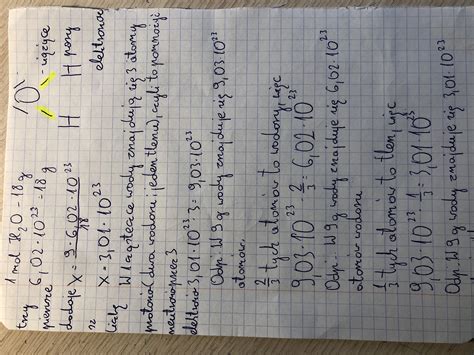 1 mol H₂O - 18 g
6,02·10²³ - 18 g
O - wiążące
H H pary
X = 9·6,02·10²³ / 18
X = 3,01·10²³
W 1 cząsteczce wody znajdują się 3 atomy
(dwa wodoru, jeden tlenu), czyli to
3,01·10²³·3 = 9,03·10²³
Odp.: W 9 g wody znajduje się 9,03·10²³
atomów.
2/3 tych atomów to wodory, więc
9,03·10²³·2/3 = 6,02·10²³
Odp.: W 9 g wody znajduje się 6,02·10²³
atomów wodoru
1/3 tych atomów to tlen, więc
9,03·10²³·1/3 = 3,01·10²³
Odp.: W 9 g wody znajduje się 3,01·10²³